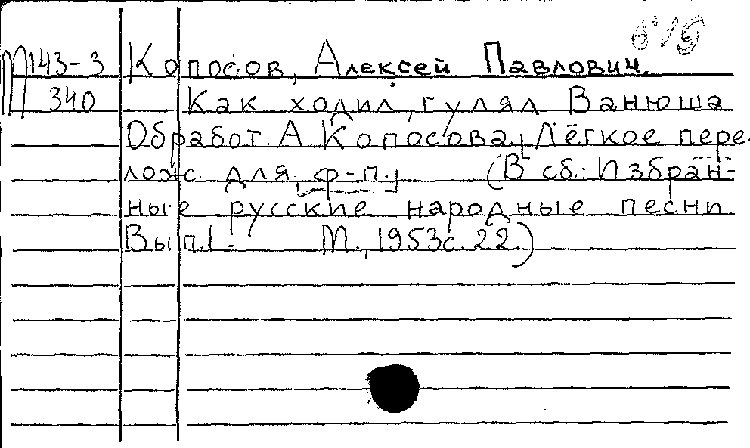 М143-3 Копосов, Алексей Павлович.
340 Как ходил, гулял Ванюша
Обработ. А. Копосова. Лёгкое пере-
лож. для ф-п. (В сб.: Избран-
ные русские народные песни
Вып.1. М., 1953 с. 22.)